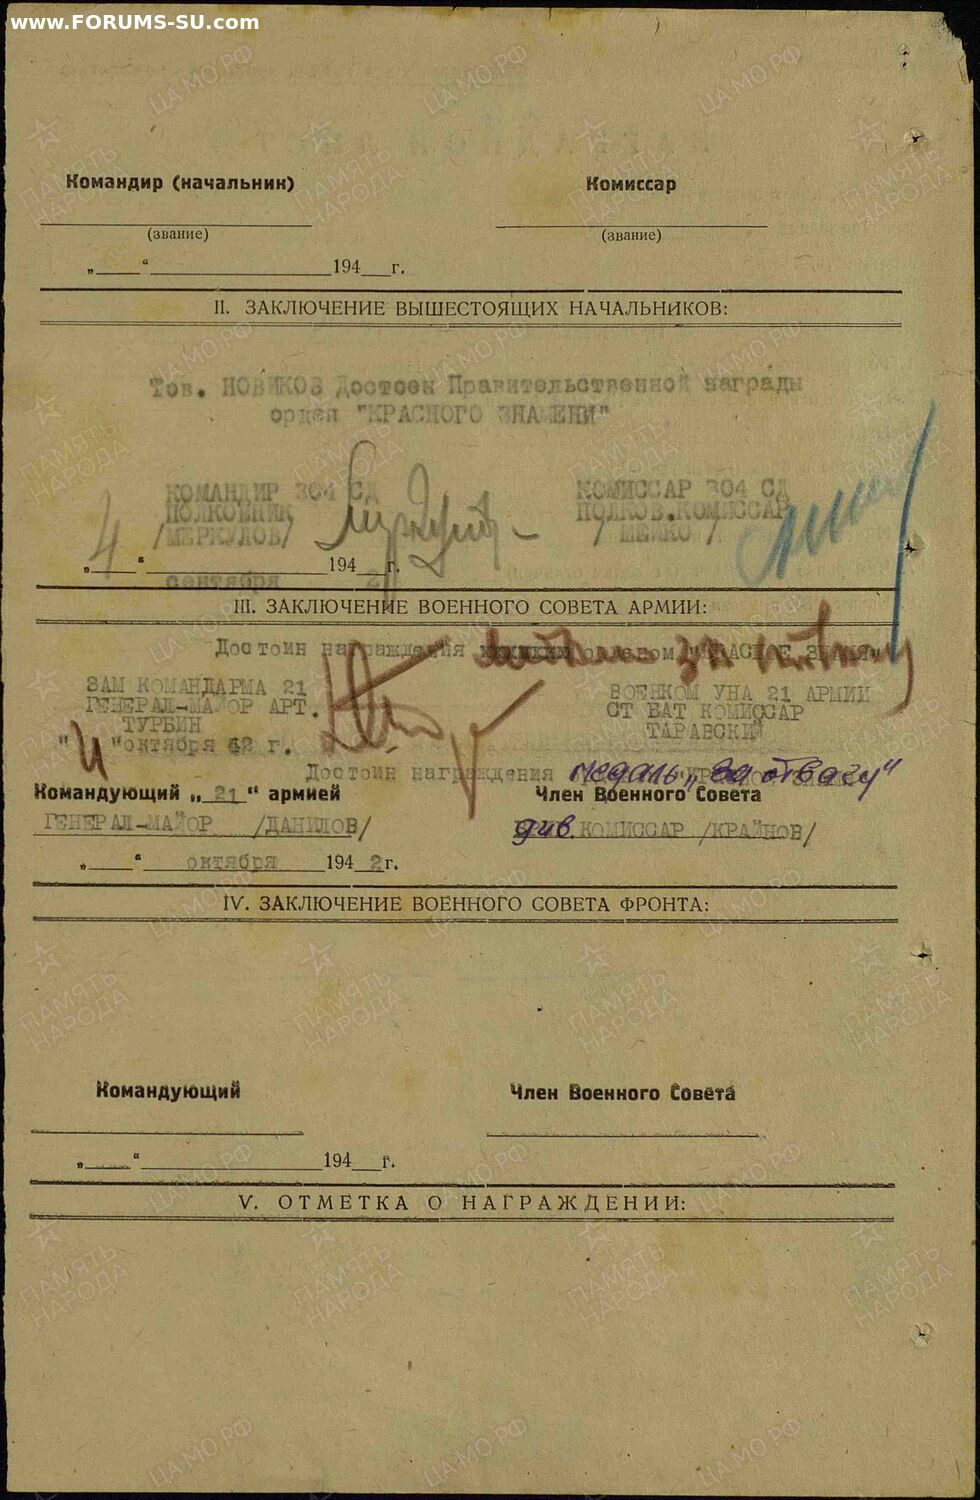 www.FORUMS-SU.com
Командир (начальник) Комиссар
(звание) (звание)
„ “ 194 г.
II. ЗАКЛЮЧЕНИЕ ВЫШЕСТОЯЩИХ НАЧАЛЬНИКОВ:
Тов. НОВИКОВ Достоен Правительственной награды
орден "КРАСНОГО ЗНАМЕНИ"
КОМАНДИР 304 СД КОМИССАР 304 СД
ПОЛКОВНИК ПОЛКОВ.КОМИССАР
/МЕРКУЛОВ/
„4“ сентября 1942 г.
III. ЗАКЛЮЧЕНИЕ ВОЕННОГО СОВЕТА АРМИИ:
Достоин награждения
ЗАМ КОМАНДАРМА 21 ВОЕНКОМ УНА 21 АРМИИ
ГЕНЕРАЛ-МАЙОР АРТ. СТ БАТ КОМИССАР
ТУРБИН ТАРАВСКИЙ
"4"октября 42 г.
Достоин награждения медаль „За отвагу“
Командующий „21“ армией Член Военного Совета
ГЕНЕРАЛ-МАЙОР /ДАНИЛОВ/ див. КОМИССАР /КРАЙНОВ/
„ “ октября 1942 г.
IV. ЗАКЛЮЧЕНИЕ ВОЕННОГО СОВЕТА ФРОНТА:
Командующий Член Военного Совета
„ “ 194 г.
V. ОТМЕТКА О НАГРАЖДЕНИИ:
ПАМЯТЬ НАРОДА
ЦА МО РФ